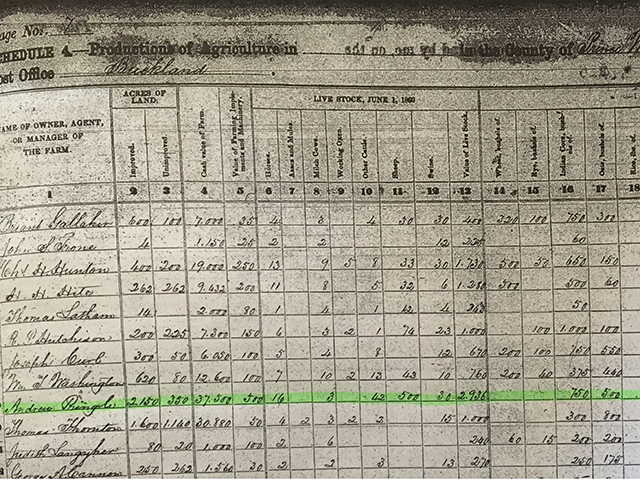 age No.
SCHEDULE 4.—Productions of Agriculture in in the County of
ost Office Buckland
NAME OF OWNER, AGENT, OR MANAGER OF THE FARM. ACRES OF LAND. Improved. Unimproved. Cash value of Farm. Value of Farming Implements and Machinery. LIVE STOCK, JUNE 1, 1860 Horses. Asses and Mules. Milch Cows. Working Oxen. Other Cattle. Sheep. Swine. Value of Live Stock. Wheat, bushels of. Rye, bushels of. Indian Corn, bushels of. Oats, bushels of.
1 2 3 4 5 6 7 8 9 10 11 12 13 14 15 16 17 18
Gallaher 600 100 7.000 35 4 3 4 30 30 400 320 100 750 300
John S Trone 4 1.150 25 2 2 12 225 60
Chs H Hunton 400 200 19.000 250 13 9 5 8 33 30 1.730 500 50 650 150
H H Hite 262 262 9.432 200 11 8 5 32 6 1.250 300 500 60
Thomas Latham 14 2.000 80 1 4 1 4 50
R P Hutchison 200 225 7.300 150 6 3 2 1 74 23 1.000 100 1.000 100
Joseph Curl 300 50 6.050 100 5 4 8 12 670 200 100 750 550
Wm T Washington 620 80 12.600 100 7 10 2 13 43 10 760 200 40 375 440
Andrew Pringle 2.150 350 37.500 500 16 3 42 500 30 2.936 750 500
Thomas Thornton 1.600 1.140 30.880 50 4 2 3 2 2 15 1.000 300 800
Langyher 80 20 1.000 100 2 6 240 60 15 200 200
George A Cannon 250 262 1.560 30 2 2 3 13 270 250 175